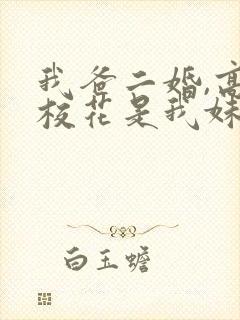 我爸二婚,高
校花是我妹
白玉蟾